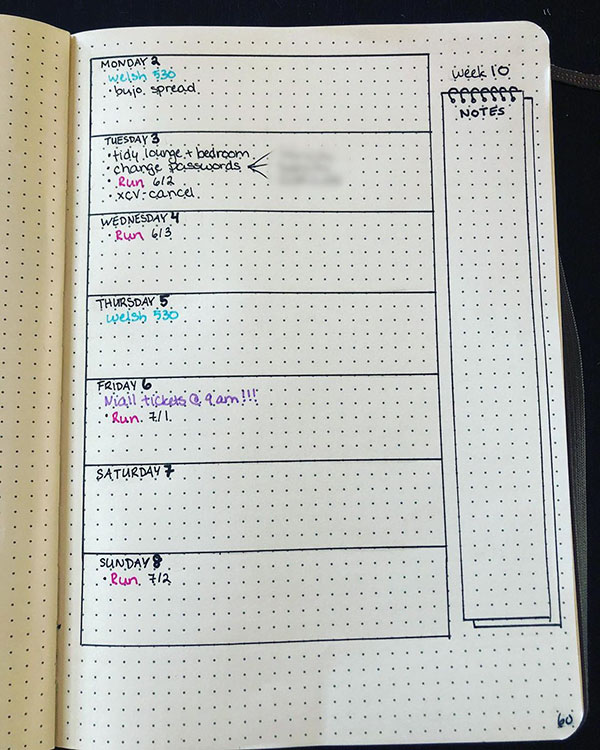 MONDAY 2
Welsh 530
• bujo spread
TUESDAY 3
• tidy lounge + bedroom
• change passwords
• Run 6/2
• xcv - cancel
WEDNESDAY 4
• Run 6/3
THURSDAY 5
Welsh 530
FRIDAY 6
Niall tickets @ 9am!!!
• Run 7/1
SATURDAY 7
SUNDAY 8
• Run 7/2
Week 10
NOTES
60